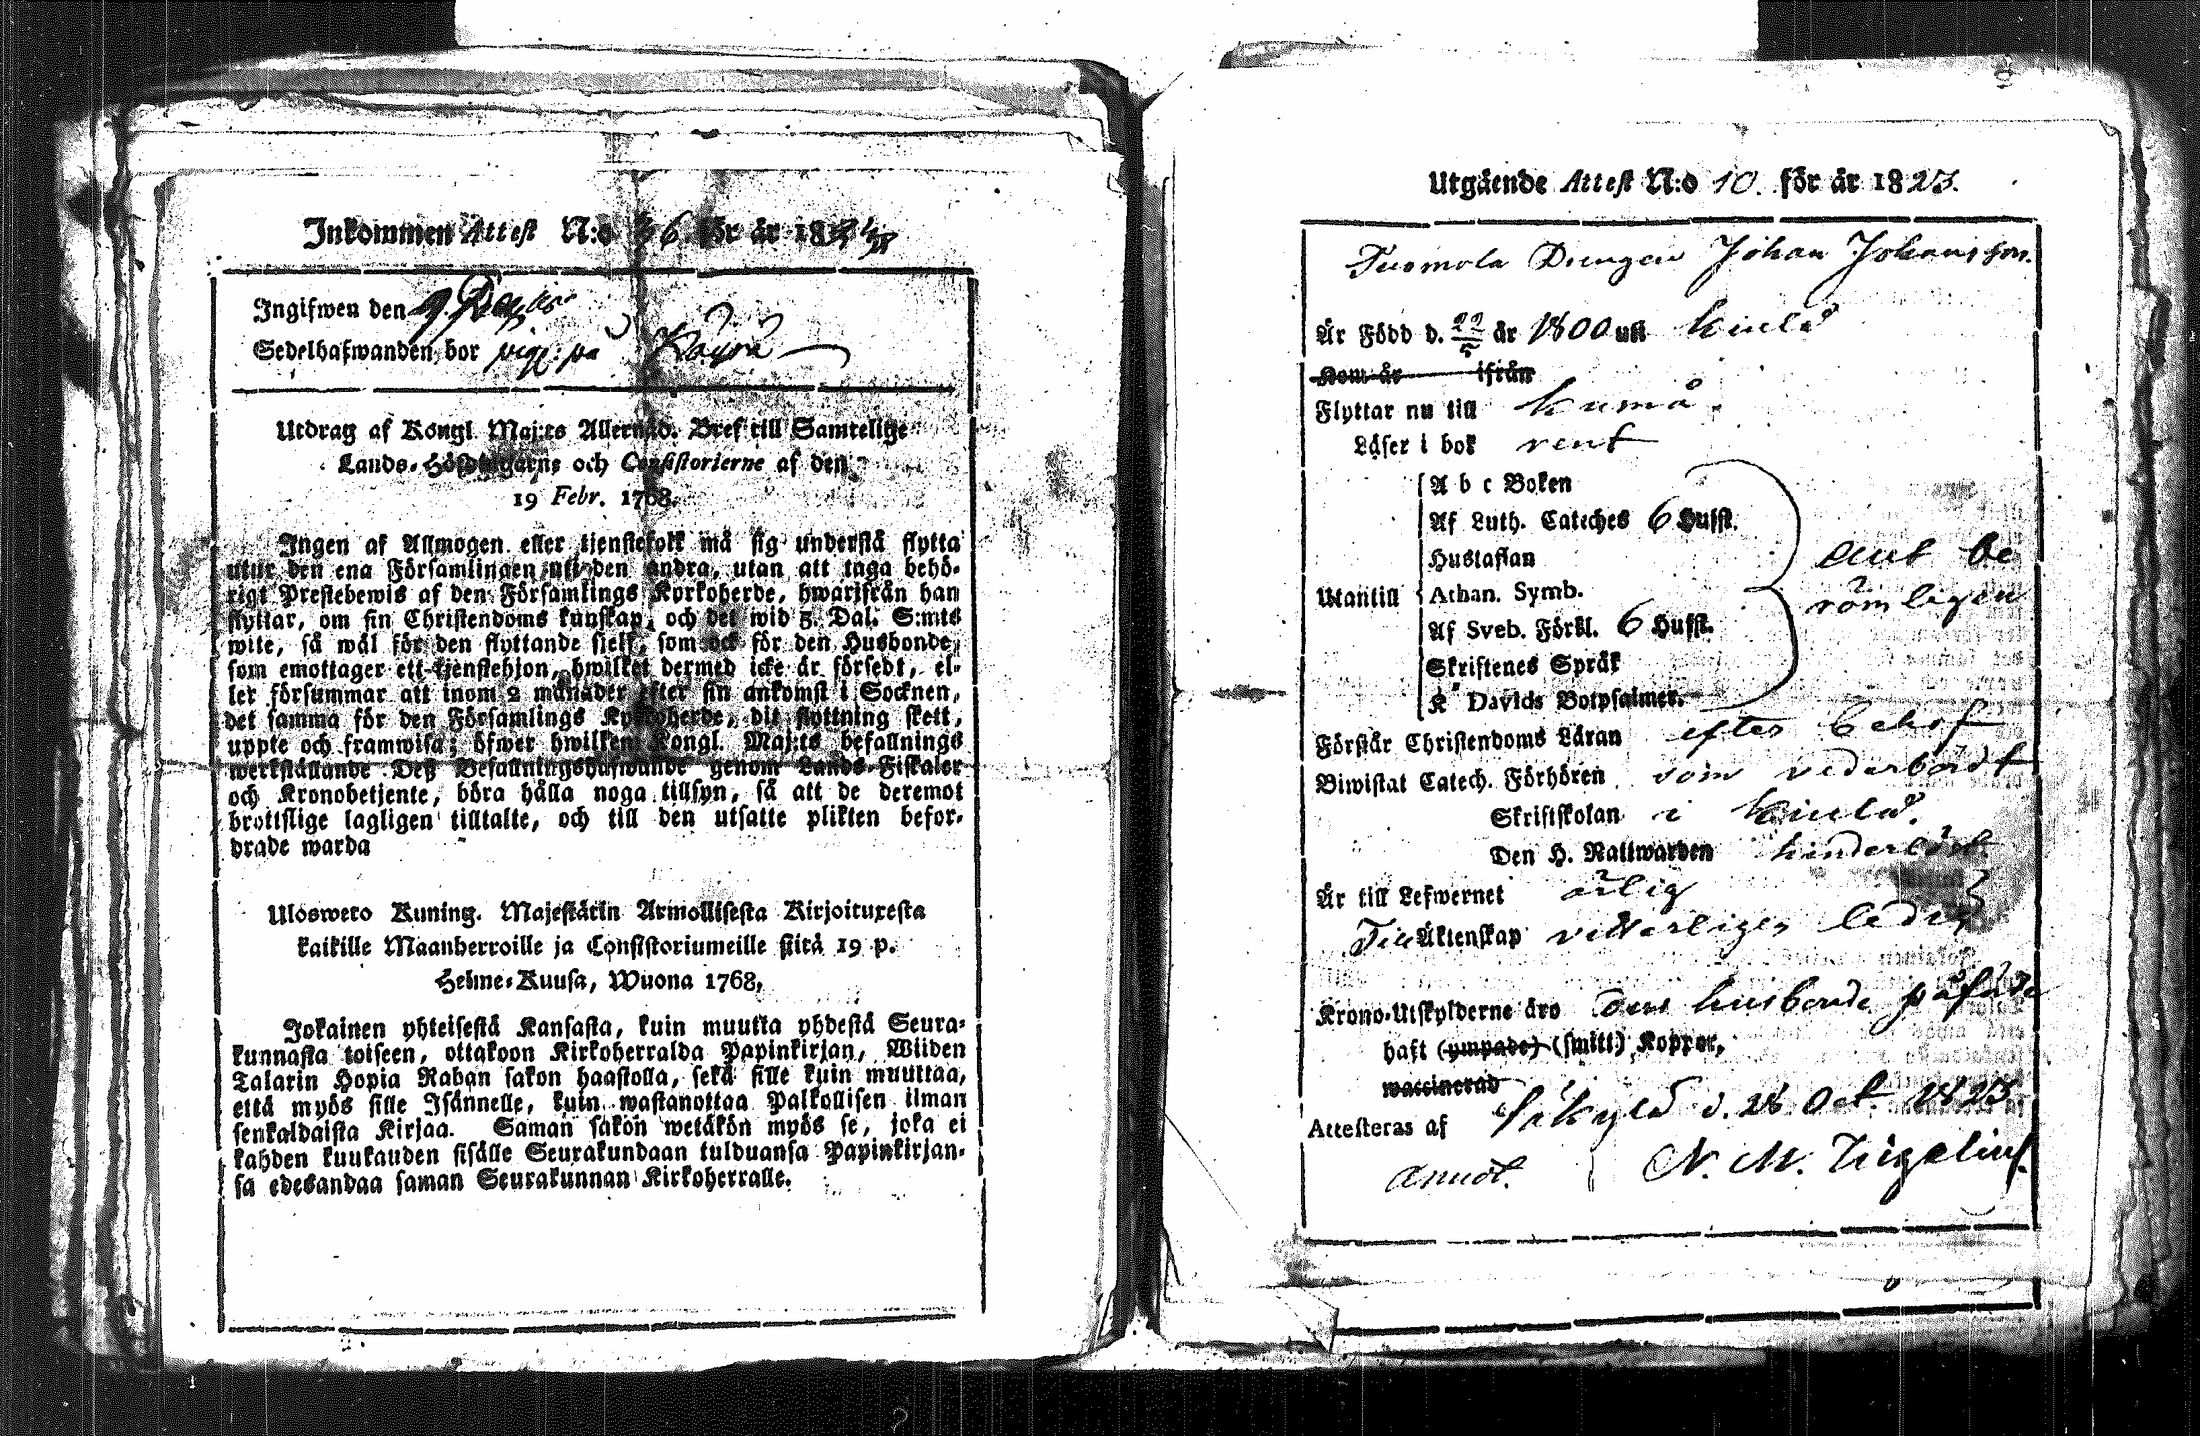 Inkommen Attest N:o 6. för år 18
Ingifwen den 9.
Sedelhafwanden bor på
Utdrag af Kongl. Maj:ts Allernåd. Bref till Samtelige
Lands-Höfdingarne och Consistorierne af den
19 Febr. 1768.
Ingen af Allmogen eller tjenstefolk må sig understå flytta
utur den ena Församlingen uti den andra, utan att taga behö-
rigt Prestebewis af den Församlings Kyrkoherde, hwarifrån han
flyttar, om sin Christendoms kunskap, och det wid 5. Dal. S:mts
wite, så wäl för den flyttande sjelf, som ock för den Husbonde,
som emottager ett tjenstehjon, hwilket dermed icke är försedt, el-
ler försummar att inom 2 månader efter sin ankomst i Socknen,
det samma för den Församlings Kyrkoherde, dit flyttning skett,
uppte och framwisa; öfwer hwilken Kongl. Maj:ts befallnings
werkställande Deß Befallningshafwande genom Lands-Fiskaler
och Kronobetjente, böra hålla noga tillsyn, så att de deremot
brottslige lagligen tilltalte, och till den utsatte plikten befor-
drade warda
Uloswero Kuning. Majestätin Armollisesta Kirjoituxesta
kaikille Maanherroille ja Consistoriumeille siitä 19 p.
Helme-Kuusa, Wuona 1768,
Jokainen yhteisestä Kansasta, kuin muutta yhdestä Seura-
kunnasta toiseen, ottakoon Kirkoherralda Papinkirjan, Wiiden
Talarin Hopia Rahan sakon haastolla, sekä sille kuin muuttaa,
että myös sille Isännelle, kuin wastanottaa Palkollisen ilman
senkaldaista Kirjaa. Saman sakon wetäkön myös se, joka ei
kahden kuukauden sisälle Seurakundaan tulduansa Papinkirjan-
sa edesandaa saman Seurakunnan Kirkoherralle.
Utgående Attest N:o 10. för år 1823.
Tuomola Drengen Johan Johansson.
Är Född d. 22/5 år 1800 uti Kiulo
Kom år ifrån
Flyttar nu till Kumå.
Läser i bok rent
A b c Boken
Af Luth. Cateches 6 Hufst.
Hustaflan
Utantill Athan. Symb.
Af Sveb. Förkl. 6 Hufst.
Skriftenes Språk
K Davids Botpsalmer.
allt be
römligen
Förstår Christendoms Läran efter behof
Biwistat Catech. Förhören som vederbordt
Skriftskolan i Kiulo.
Den H. Nattwarden hinderlöst.
Är till Lefwernet ärlig
Till Äktenskap vitterligen ledig
Krono-Utskylderne äro dess husbonde påförde
haft (ympade) (smitt) Koppor,
waccinerad
Attesteras af Säkylä d. 26 Oct. 1823.
N. M. Tigelius.